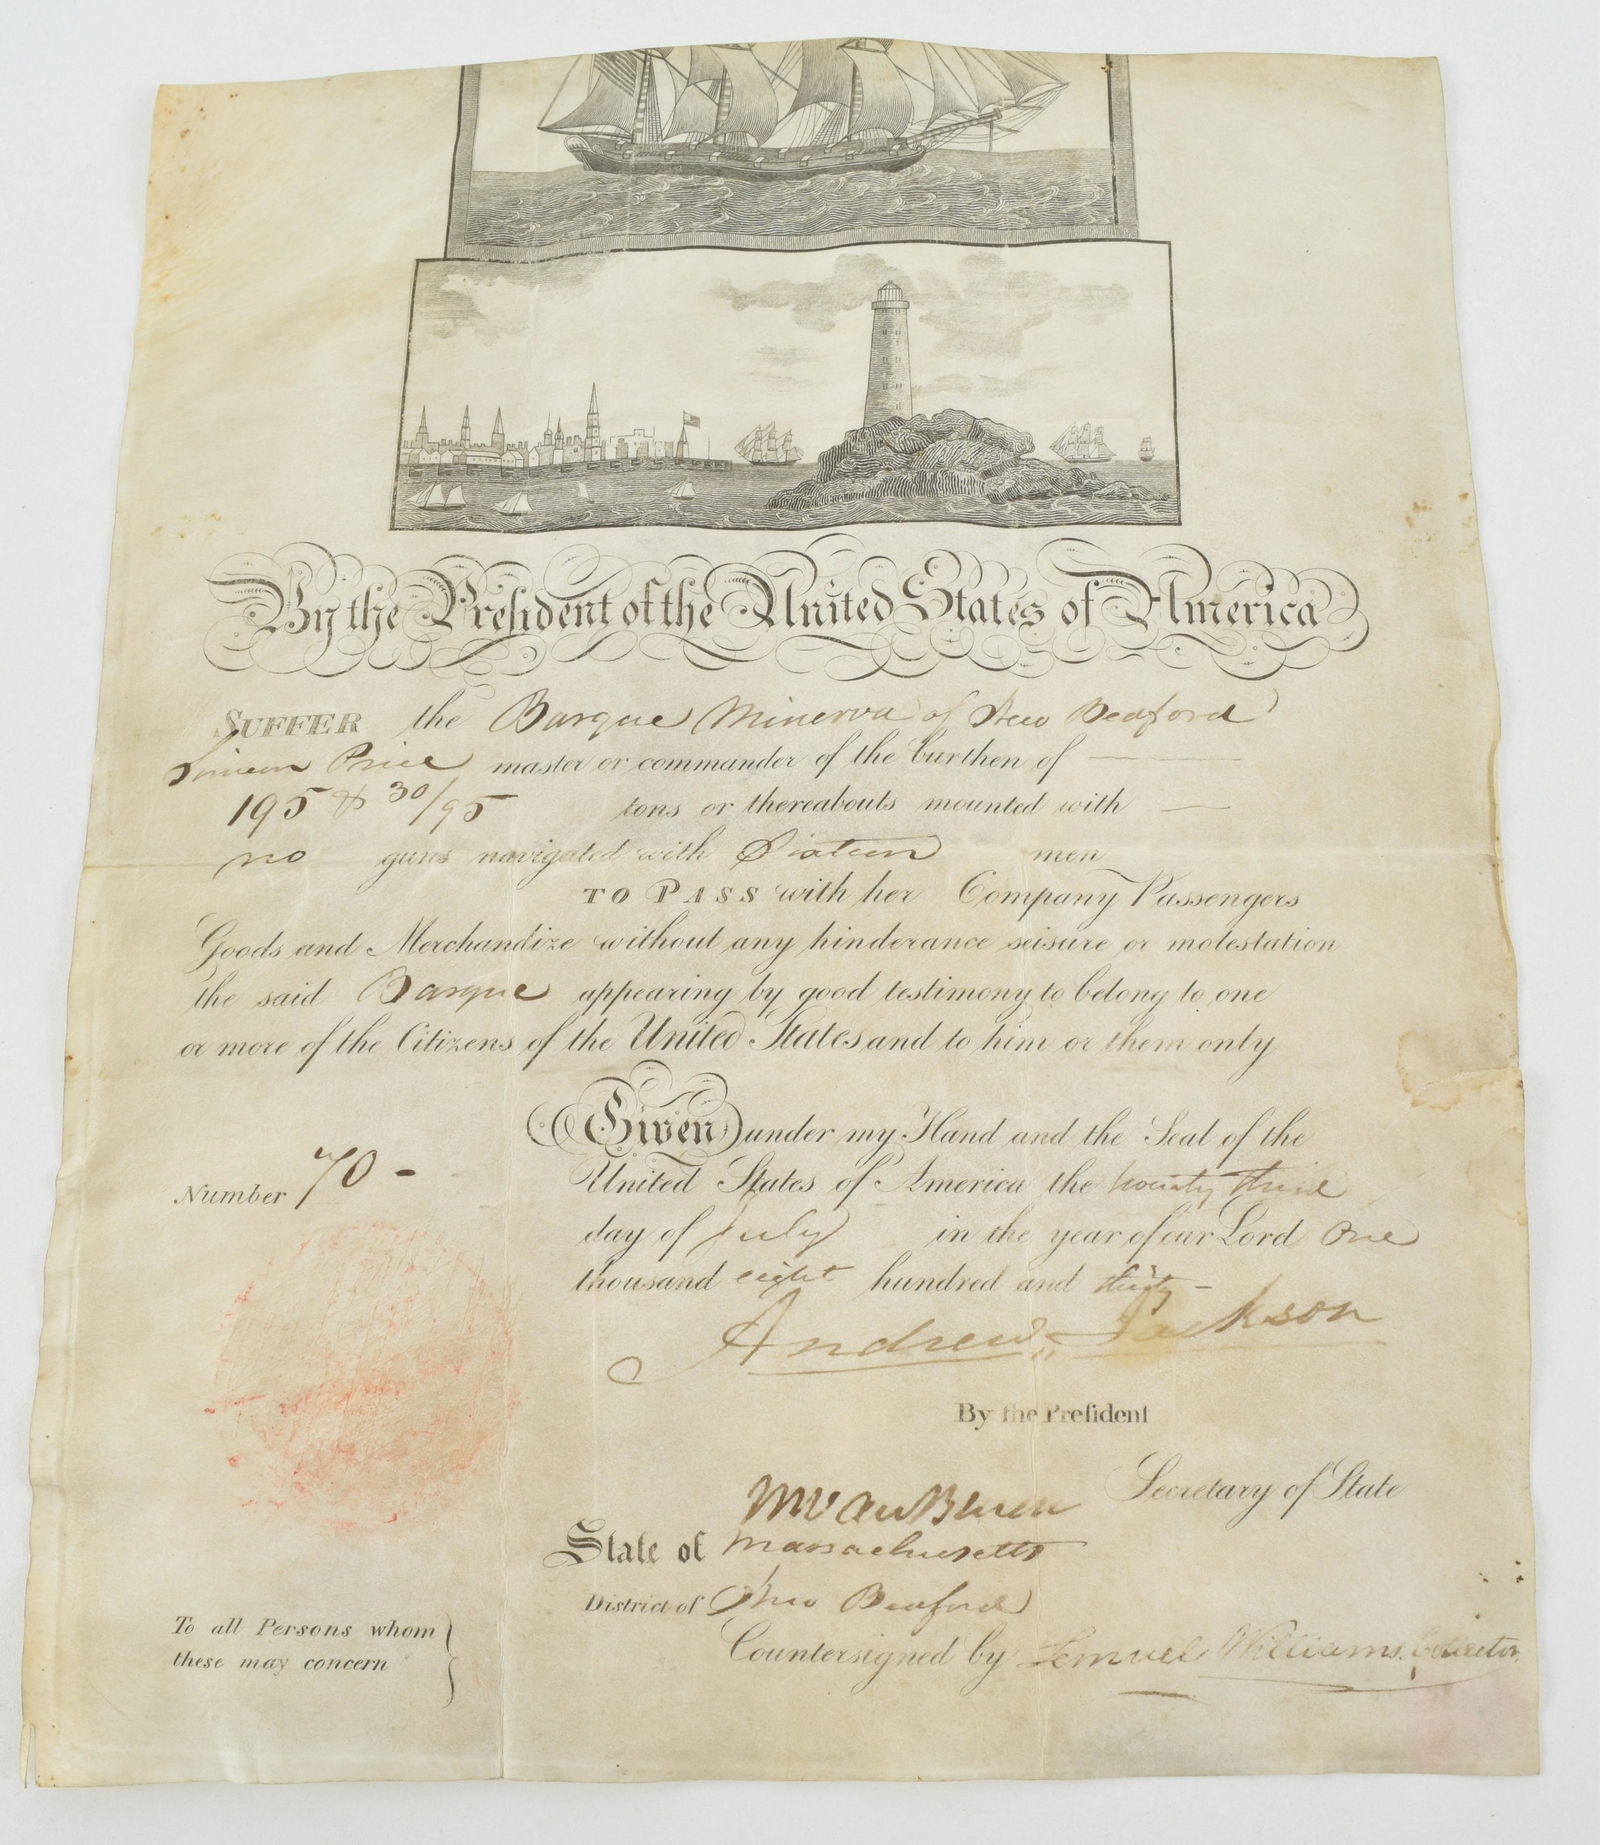 By the President of the United States of America
SUFFER the Barque Minerva of New Bedford
Simeon Price master or commander of the burthen of
195 & 30/95 tons or thereabouts mounted with
no guns navigated with Sixteen men
TO PASS with her Company Passengers
Goods and Merchandize without any hinderance seisure or molestation
the said Barque appearing by good testimony to belong to one
or more of the Citizens of the United States and to him or them only
Given under my Hand and the Seal of the
United States of America the twenty third
day of July in the year of our Lord One
thousand eight hundred and thirty-
Number 70 -
Andrew Jackson
By the President
M Van Buren Secretary of State
State of Massachusetts
District of New Bedford
Countersigned by Lemuel Williams. Collector.
To all Persons whom
these may concern